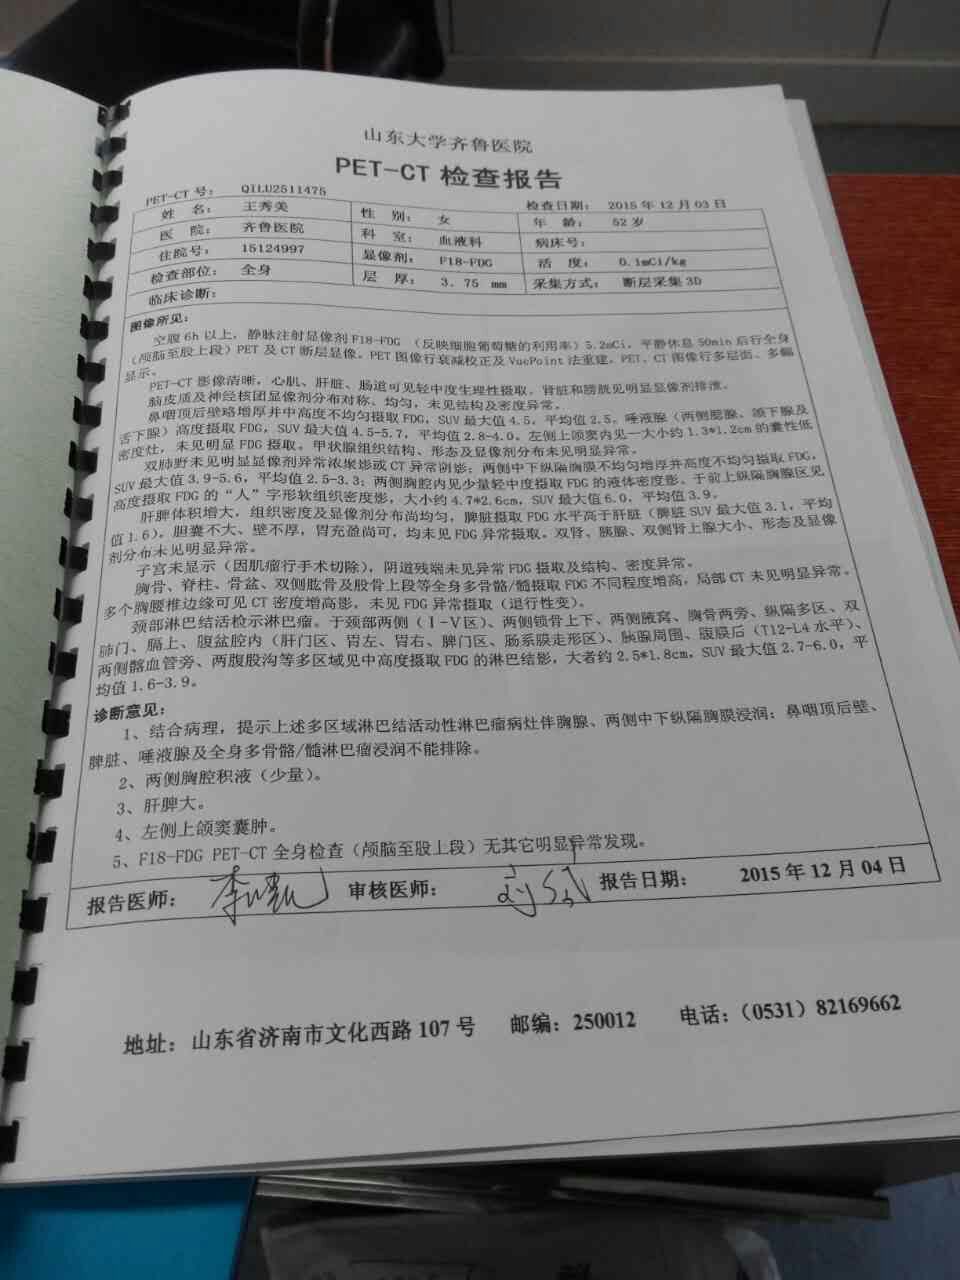 山东大学齐鲁医院
PET-CT 检查报告
PET-CT 号： QILU2511475 检查日期： 2015 年 12 月 03 日
姓 名： 王秀美 性 别： 女 年 龄： 52 岁
医 院： 齐鲁医院 科 室： 血液科 病床号：
住院号： 15124997 显像剂： F18-FDG 活 度： 0.1mCi/kg
检查部位： 全身 层 厚： 3.75 mm 采集方式： 断层采集 3D
临床诊断：
图像所见：
空腹 6h 以上，静脉注射显像剂 F18-FDG （反映细胞葡萄糖的利用率）5.2mCi，平静休息 50min 后行全身
（颅脑至股上段）PET 及 CT 断层显像。PET 图像行衰减校正及 VuePoint 法重建，PET、CT 图像行多层面、多幅
显示。
PET-CT 影像清晰，心肌、肝脏、肠道可见轻中度生理性摄取，肾脏和膀胱见明显显像剂排泄。
脑皮质及神经核团显像剂分布对称、均匀，未见结构及密度异常。
鼻咽顶后壁略增厚并中高度不均匀摄取 FDG，SUV 最大值 4.5，平均值 2.5。唾液腺（两侧腮腺、颌下腺及
舌下腺）高度摄取 FDG，SUV 最大值 4.5-5.7，平均值 2.8-4.0。左侧上颌窦内见一大小约 1.3*1.2cm 的囊性低
密度灶，未见明显 FDG 摄取。甲状腺组织结构、形态及显像剂分布未见明显异常。
双肺野未见明显显像剂异常浓聚影或 CT 异常阴影；两侧中下纵隔胸膜不均匀增厚并高度不均匀摄取 FDG，
SUV 最大值 3.9-5.6，平均值 2.5-3.3；两侧胸腔内见少量轻中度摄取 FDG 的液体密度影。于前上纵隔胸腺区见
高度摄取 FDG 的“人”字形软组织密度影，大小约 4.7*2.6cm，SUV 最大值 6.0，平均值 3.9。
肝脾体积增大，组织密度及显像剂分布尚均匀，脾脏摄取 FDG 水平高于肝脏（脾脏 SUV 最大值 3.1，平均
值 1.6），胆囊不大、壁不厚，胃充盈尚可，均未见 FDG 异常摄取。双肾、胰腺、双侧肾上腺大小、形态及显像
剂分布未见明显异常。
子宫未显示（因肌瘤行手术切除），阴道残端未见异常 FDG 摄取及结构、密度异常。
胸骨、脊柱、骨盆、双侧肱骨及股骨上段等全身多骨骼/髓摄取 FDG 不同程度增高，局部 CT 未见明显异常。
多个胸腰椎边缘可见 CT 密度增高影，未见 FDG 异常摄取（退行性变）。
颈部淋巴结活检示淋巴瘤。于颈部两侧（Ⅰ-Ⅴ区）、两侧锁骨上下、两侧腋窝、胸骨两旁、纵隔多区、双
肺门、膈上、腹盆腔内（肝门区、胃左、胃右、脾门区、肠系膜走形区）、胰腺周围、腹膜后（T12-L4 水平）、
两侧髂血管旁、两腹股沟等多区域见中高度摄取 FDG 的淋巴结影，大者约 2.5*1.8cm，SUV 最大值 2.7-6.0，平
均值 1.6-3.9。
诊断意见：
1、结合病理，提示上述多区域淋巴结活动性淋巴瘤病灶伴胸腺、两侧中下纵隔胸膜浸润；鼻咽顶后壁、
脾脏、唾液腺及全身多骨骼/髓淋巴瘤浸润不能排除。
2、两侧胸腔积液（少量）。
3、肝脾大。
4、左侧上颌窦囊肿。
5、F18-FDG PET-CT 全身检查（颅脑至股上段）无其它明显异常发现。
报告医师： 审核医师： 报告日期： 2015 年 12 月 04 日
地址：山东省济南市文化西路 107 号 邮编：250012 电话：（0531）82169662